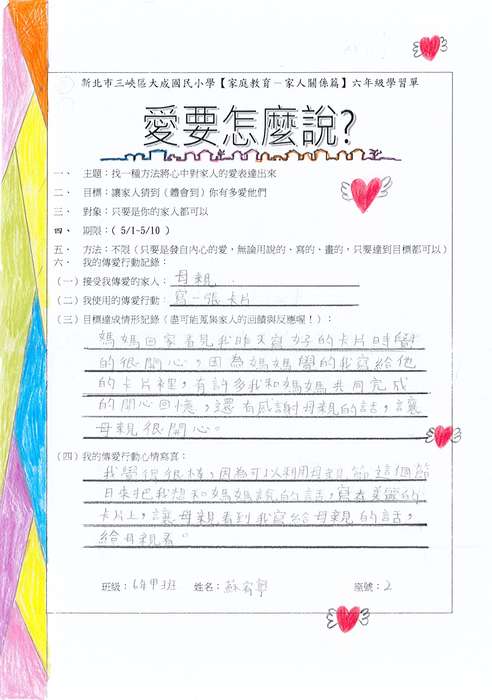 新北市三峽區大成國民小學【家庭教育－家人關係篇】六年級學習單
愛要怎麼說?
一、 主題：找一種方法將心中對家人的愛表達出來
二、 目標：讓家人猜到(體會到)你有多愛他們
三、 對象：只要是你的家人都可以
四、 期限：( 5/1~5/10 )
五、 方法：不限(只要是發自內心的愛，無論用說的、寫的、畫的，只要達到目標都可以)
六、 我的傳愛行動記錄：
(一)接受我傳愛的家人：母親
(二)我使用的傳愛行動：寫一張卡片
(三)目標達成情形記錄(盡可能蒐集家人的回饋與反應喔！)：
媽媽回家看見我昨天寫好的卡片時覺
的很開心，因為媽媽覺的我寫給他
的卡片裡，有許多我和媽媽共同完成
的開心回憶，還有感謝母親的話，讓
母親很開心。
(四)我的傳愛行動心情寫真：
我覺得很棒，因為可以利用母親節這個節
日來把我想和媽媽說的話，寫在美麗的
卡片上，讓母親看到我寫給母親的話，
給母親看。
班級：6年甲班 姓名：蘇 座號：2